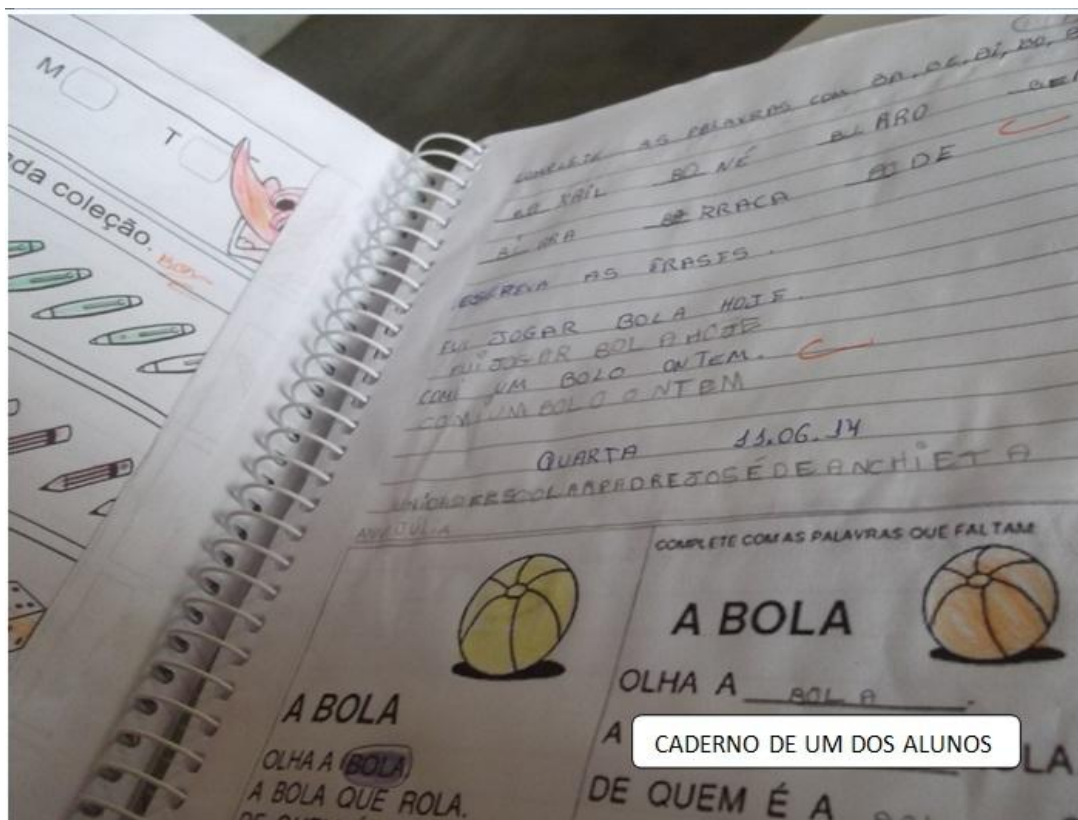 M
T
da coleção.
COMPLETE AS PALAVRAS COM BA, BE, BI, BO,
BA RRIL BO NÉ BU RRO
BI RRA BA RRACA BO DE
ESCREVA AS FRASES.
FUI JOGAR BOLA HOJE.
FUI JOGAR BOLA HOJE
COMI UM BOLO ONTEM.
COMI UM BOLO ONTEM
QUARTA 11.06.14
UNIDADE ESCOLAR PADRE JOSÉ DE ANCHIETA
ANA JULIA
A BOLA
OLHA A BOLA
A BOLA QUE ROLA.
COMPLETE COM AS PALAVRAS QUE FALTAM
A BOLA
OLHA A BOLA.
A LA
DE QUEM É A
CADERNO DE UM DOS ALUNOS